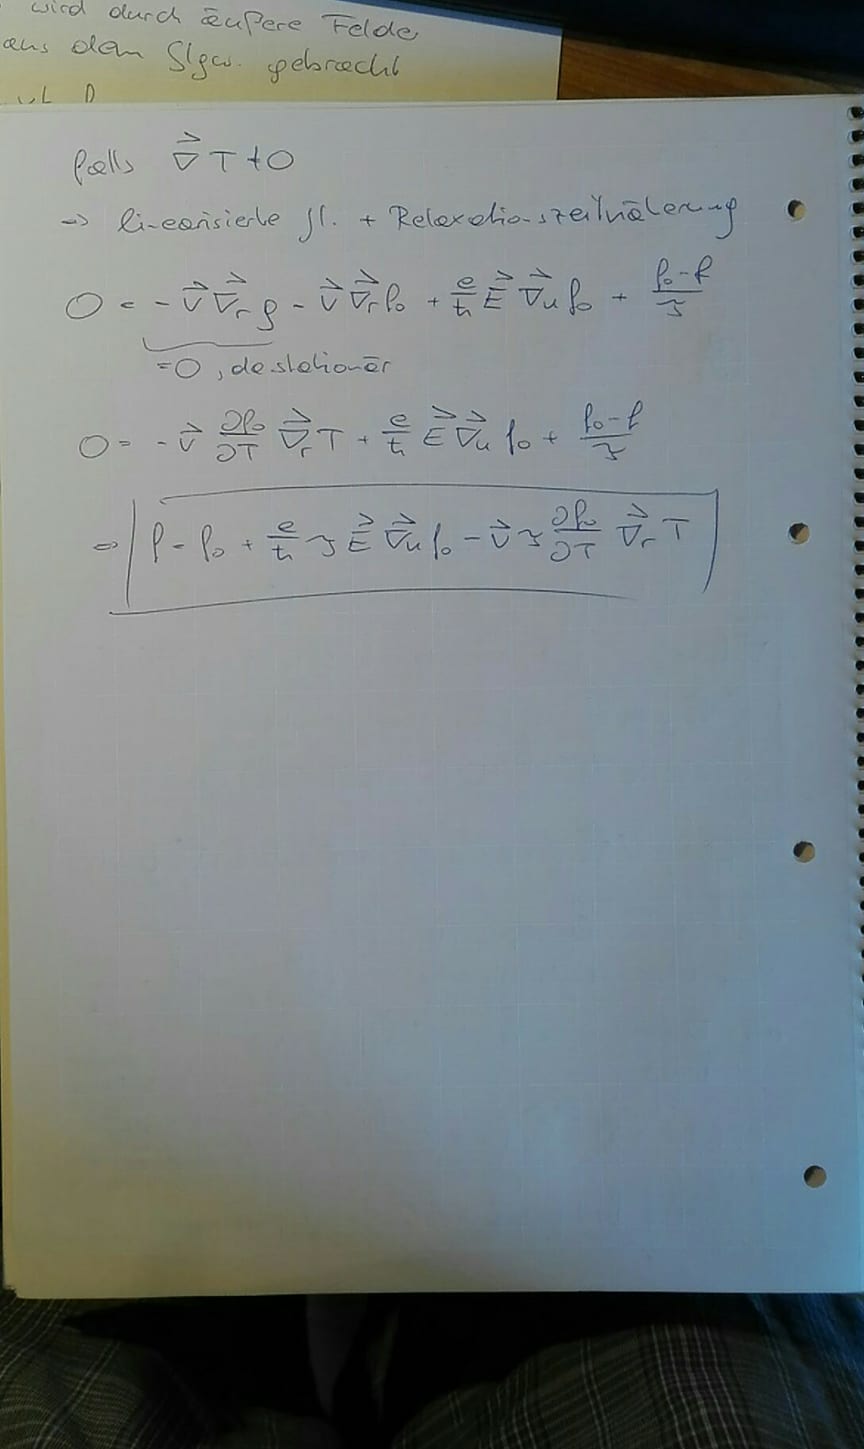 wird durch äußere Felder
aus dem Glgw. gebracht
falls ∇⃗ T ≠ 0
⇒ linearisierte Gl. + Relaxationszeitnäherung
0 = - v⃗ ∇⃗_r g - v⃗ ∇⃗_r f₀ + e/ħ E⃗ ∇⃗_k f₀ + (f₀-f)/τ
=0, da stationär
0 = - v⃗ ∂f₀/∂T ∇⃗_r T + e/ħ E⃗ ∇⃗_k f₀ + (f₀-f)/τ
⇒ f = f₀ + e/ħ τ E⃗ ∇⃗_k f₀ - v⃗ τ ∂f₀/∂T ∇⃗_r T